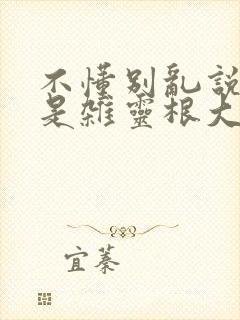 不懂別亂說
是雜靈根大
宜蓁